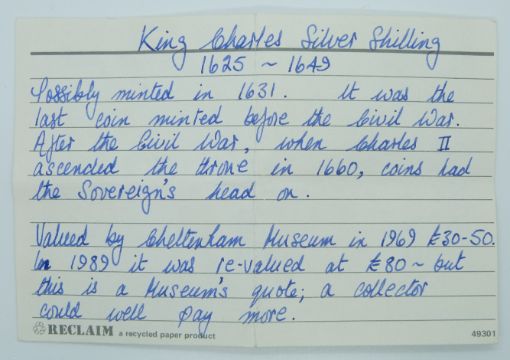 King Charles Silver Shilling
1625 ~ 1649
Possibly minted in 1631. It was the
last coin minted before the Civil War.
After the Civil War, when Charles II
ascended the throne in 1660, coins had
the Sovereign's head on.
Valued by Cheltenham Museum in 1969 £30-50.
In 1989 it was re-valued at £80 ~ but
this is a Museum's quote; a collector
could well pay more.
RECLAIM a recycled paper product 49301